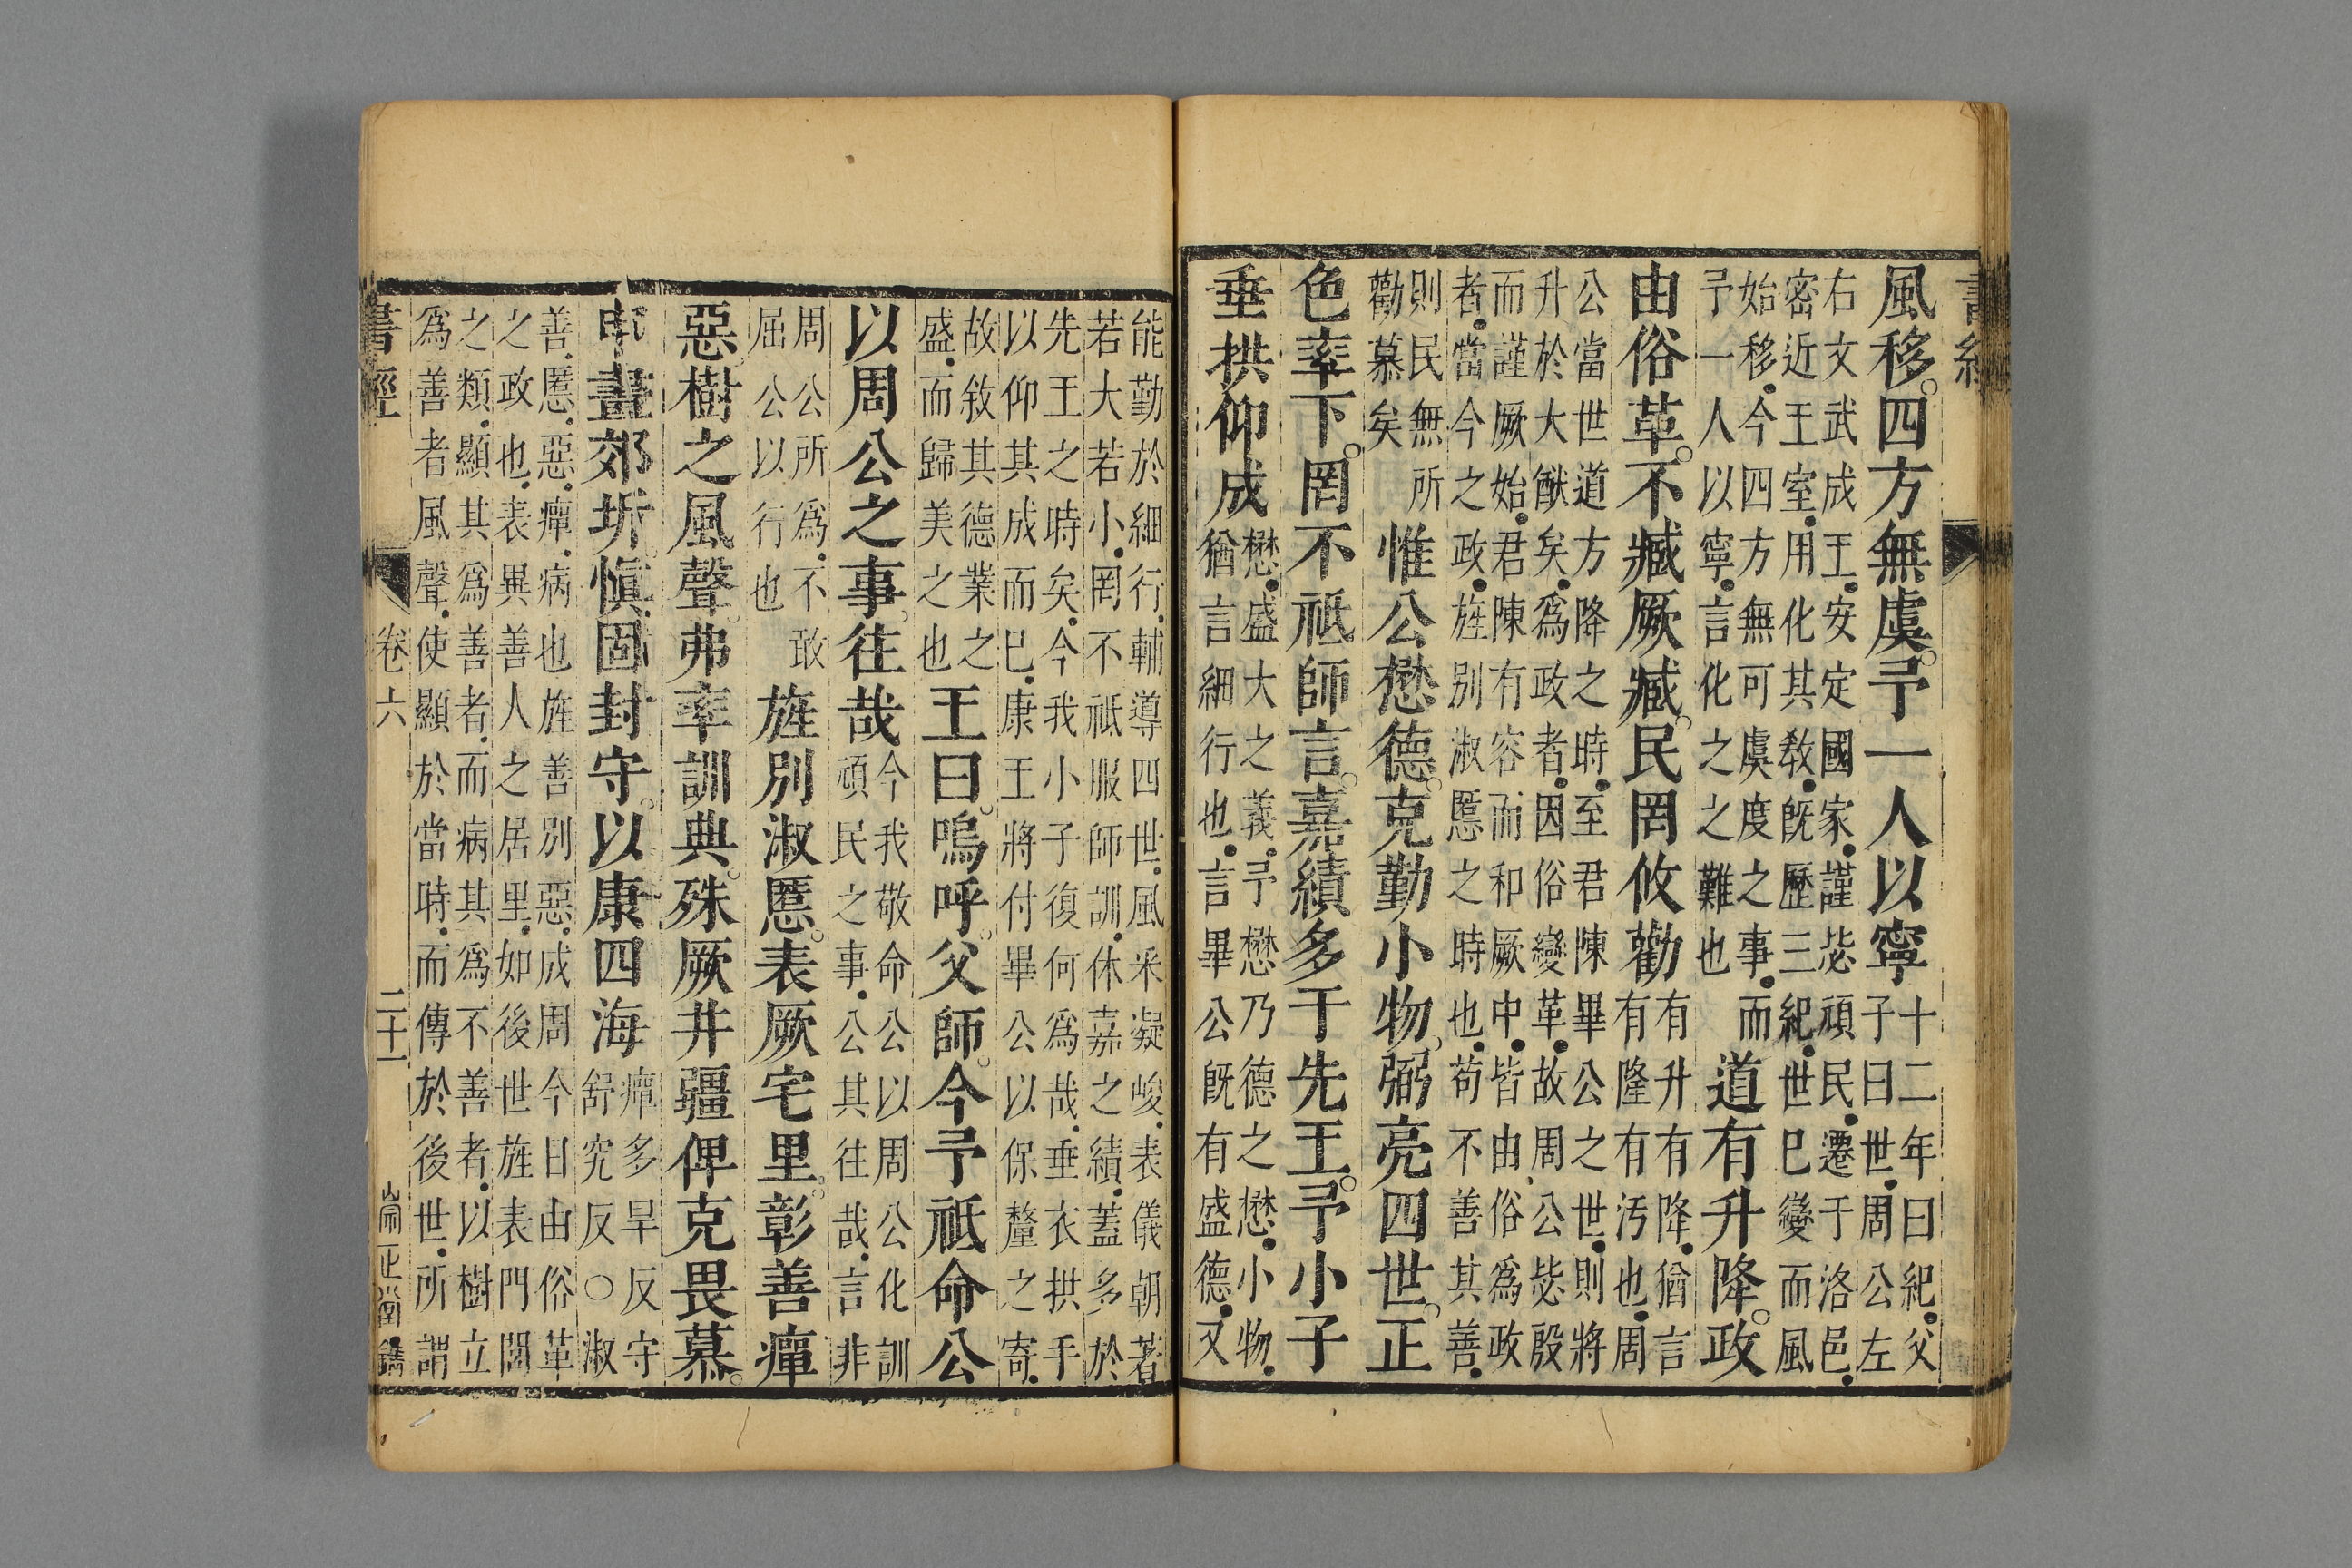 書經
風移四方無虞予一人以寧
十二年曰紀父
子曰世周公左
右文武成王安定國家謹毖頑民遷于洛邑
密近王室用化其敎既歷三紀世已變而風
始移今四方無可虞度之事而
予一人以寧言化之之難也
道有升降政
由俗革不臧厥臧民罔攸勸
有升有降猶言
有隆有污也周
公當世道方降之時至君陳畢公之世則將
升於大猷矣爲政者因俗變革故周公毖殷
而謹厥始君陳有容而和厥中皆由俗爲政
者當今之政旌別淑慝之時也苟不善其善
則民無所
勸慕矣
惟公懋德克勤小物弼亮四世正
色率下罔不祗師言嘉績多于先王予小子
垂拱仰成
懋盛大之義予懋乃德之懋小物
猶言細行也言畢公既有盛德又
能勤於細行輔導四世風采凝峻表儀朝著
若大若小罔不祗服師訓休嘉之績蓋多於
先王之時矣今我小子復何爲哉垂衣拱手
以仰其成而已康王將付畢公以保釐之寄
故敘其德業之
盛而歸美之也
王曰嗚呼父師今予祗命公
以周公之事往哉
今我敬命公以周公化訓
頑民之事公其往哉言非
周公所爲不敢
屈公以行也
旌別淑慝表厥宅里彰善癉
惡樹之風聲弗率訓典殊厥井疆俾克畏慕
申畫郊圻愼固封守以康四海
癉多旱反守
舒究反○淑
善慝惡癉病也旌善別惡成周今日由俗革
之政也表異善人之居里如後世旌表門閭
之類顯其爲善者而病其爲不善者以樹立
爲善者風聲使顯於當時而傳於後世所謂
書經 卷六 二十一 崇正堂鐫